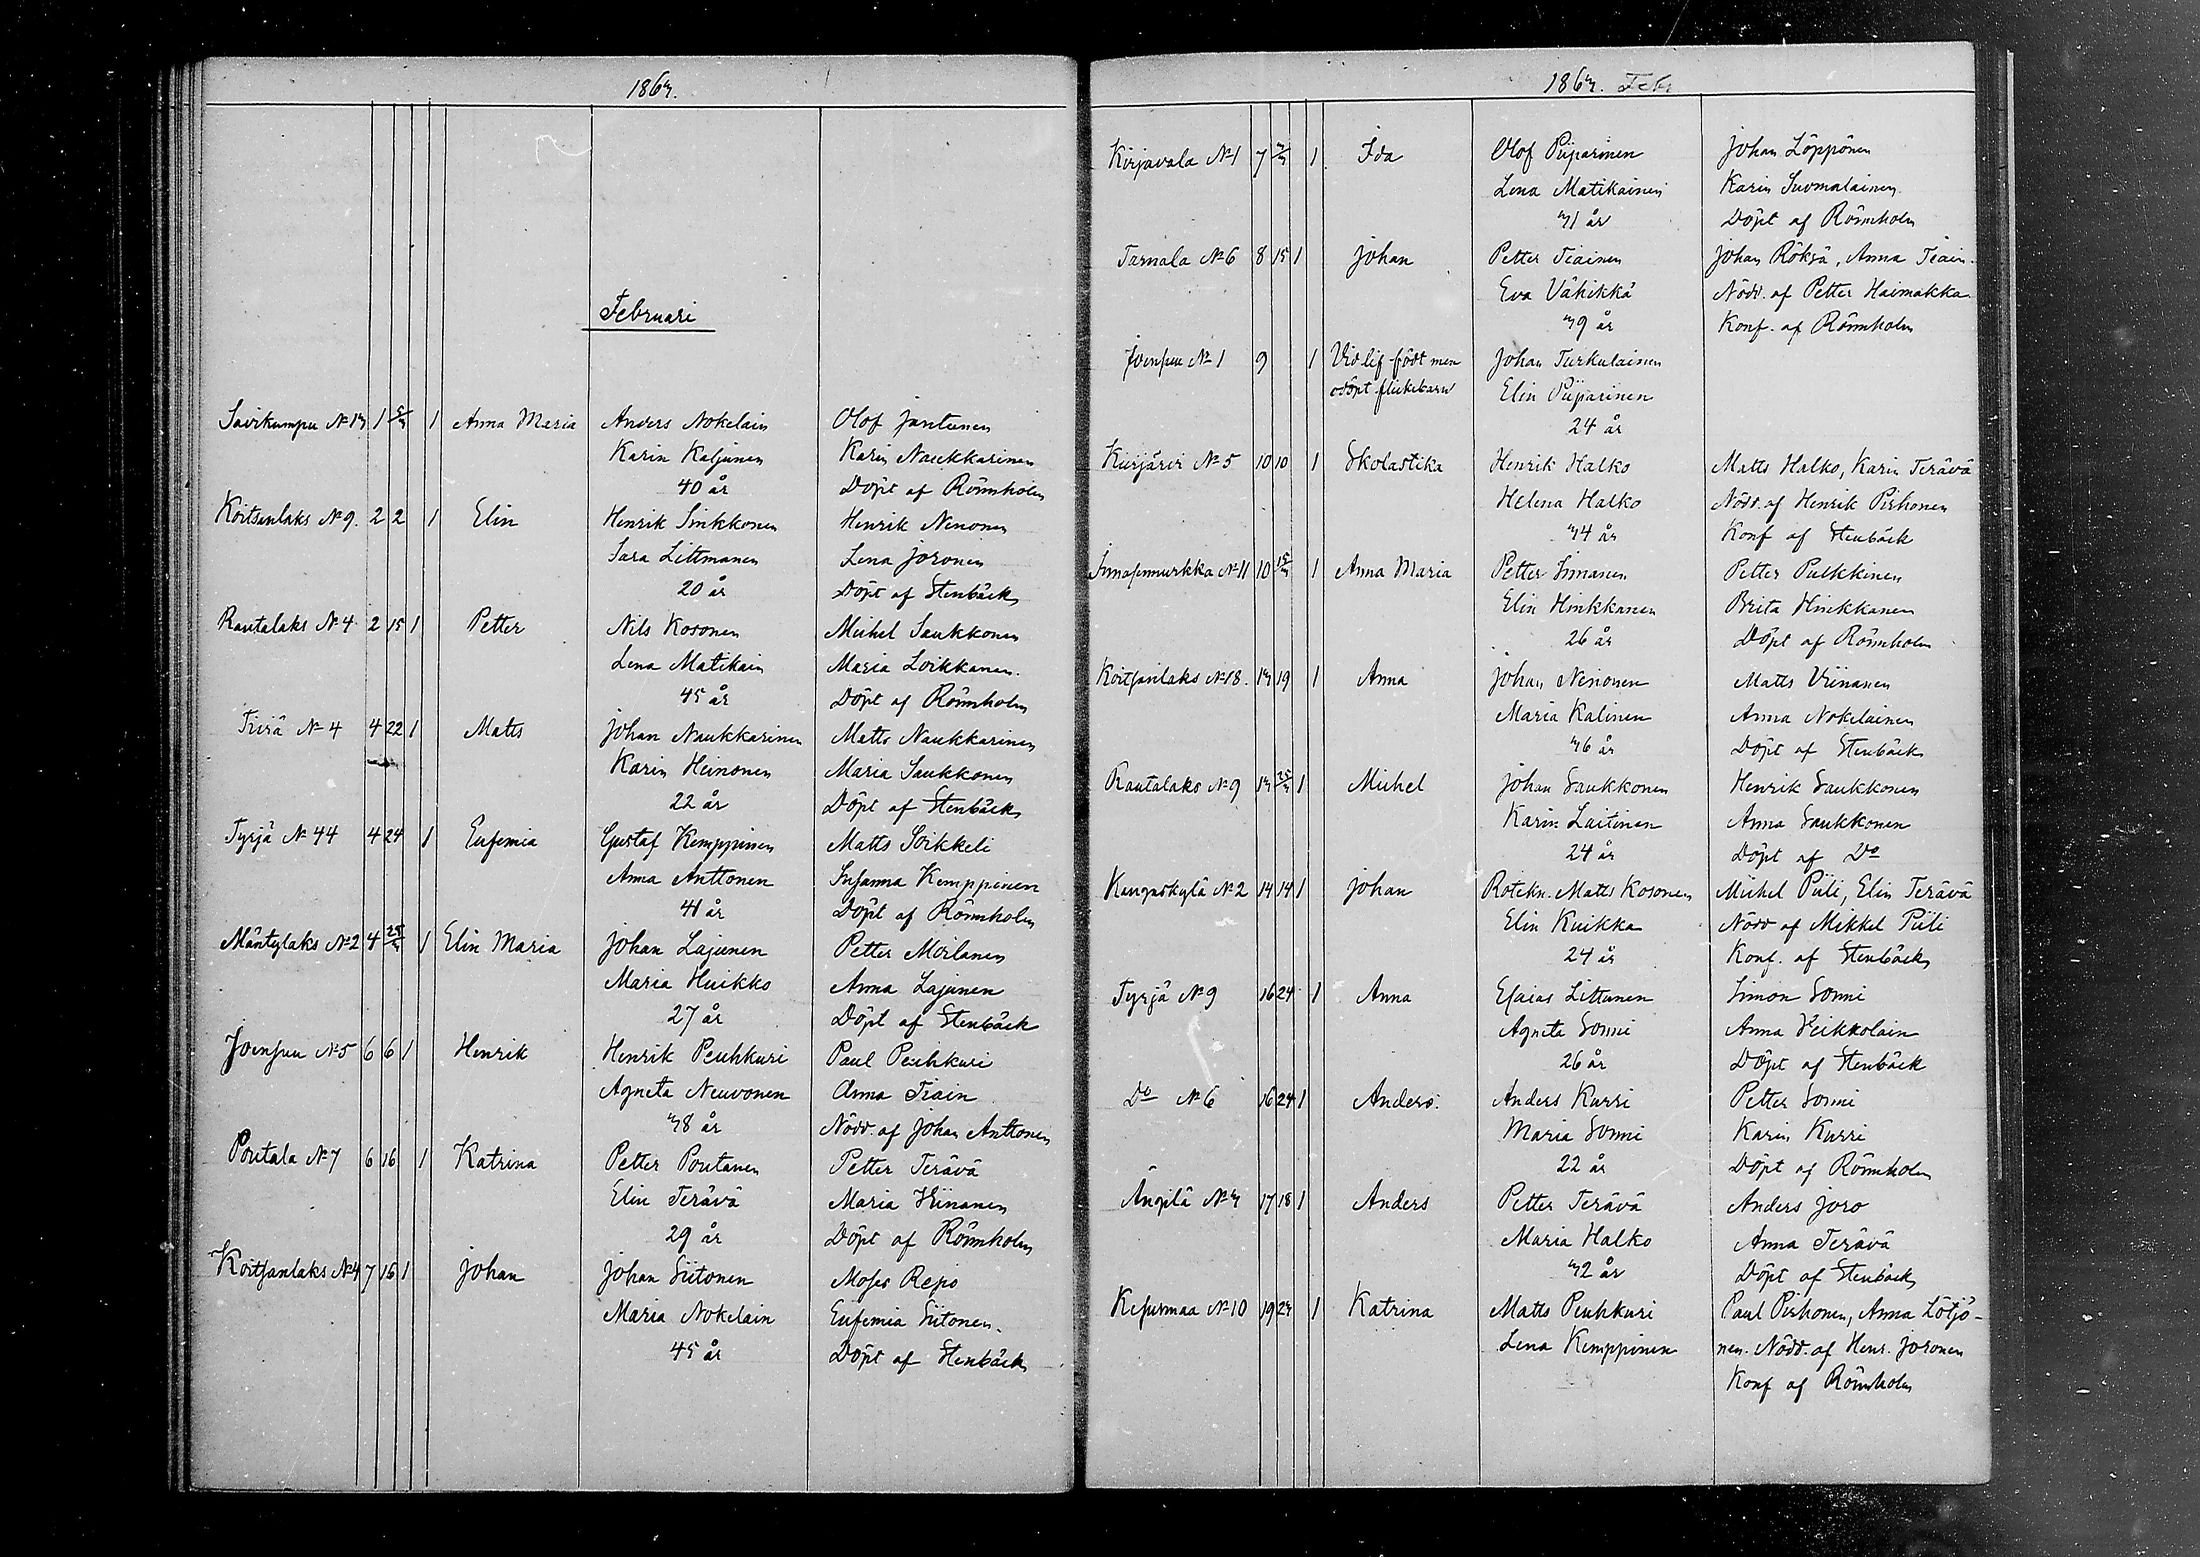 1863.
Februari
Savikumpu № 13 1 5/3 1 Anna Maria Anders Nokelain Olof Jantunen
Karin Kaljunen Karin Naukkarinen
40 år Döpt af Rönnholm
Koitsanlaks № 9. 2 2 1 Elin Henrik Sinkkonen Henrik Nenonen
Sara Littmanen Lena Joronen
20 år Döpt af Stenbäck
Rautalaks № 4 2 15 1 Petter Nils Kosonen Michel Saukkonen
Lena Matikain Maria Loikkanen.
45 år Döpt af Rönnholm
Tiviä № 4 4 22 1 Matts Johan Naukkarinen Matts Naukkarinen
Karin Heinonen Maria Saukkonen
22 år Döpt af Stenbäck
Tyrjä № 44 4 24 1 Eufemia Gustaf Kemppinen Matts Soikkeli
Anna Anttonen Susanna Kemppinen
41 år Döpt af Rönnholm
Mäntylaks № 2 4 25/3 1 Elin Maria Johan Lajunen Petter Moilanen
Maria Huikko Anna Lajunen
27 år Döpt af Stenbäck
Joenpuu № 5 6 6 1 Henrik Henrik Peuhkuri Paul Peuhkuri
Agneta Neuvonen Anna Tiain
38 år Nödd. af Johan Anttonen
Poutala № 7 6 16 1 Katrina Petter Poutanen Petter Terävä
Elin Terävä Maria Hiinanen
29 år Döpt af Rönnholm
Koitsanlaks № 4 7 15 1 Johan Johan Siitonen Moses Repo
Maria Nokelain Eufemia Siitonen.
45 år Döpt af Stenbäck
1863. Febr
Kirjavala № 1 7 3/3 1 Ida Olof Piiparinen Johan Löppönen
Lena Matikainen Karin Suomalainen
31 år Döpt af Rönnholm
Tarnala № 6 8 15 1 Johan Petter Tiainen Johan Röksä, Anna Tiain.
Eva Vähikkä Nödd. af Petter Haimakka
39 år Konf. af Rönnholm
Joenpuu № 1 9 1 Vid lif födt men Johan Turkulainen
odöpt flickebarn Elin Piiparinen
24 år
Kurjärvi № 5 10 10 1 Skolastika Henrik Halko Matts Halko, Karin Terävä
Helena Halko Nödd. af Henrik Pirhonen
34 år Konf af Stenbäck
№ 11 10 15/3 1 Anna Maria Petter Simanen Petter Pulkkinen
Elin Hinkkanen Brita Hinkkanen
26 år Döpt af Rönnholm
Koitsanlaks № 18. 13 19 1 Anna Johan Nenonen Matts Viinanen
Maria Kalinen Anna Nokelainen
36 år Döpt af Stenbäck
Rautalaks № 9 13 25/3 1 Michel Johan Saukkonen Henrik Saukkonen
Karin Laitinen Anna Saukkonen
24 år Döpt af Do
Kangaskylä № 2 14 14 1 Johan Rotekn. Matts Kosonen Michel Piili, Elin Terävä
Elin Kuikka Nödd af Mikkel Piili
24 år Konf. af Stenbäck
Tyrjä № 9 16 24 1 Anna Esaias Littunen Simon Sonni
Agneta Sonni Anna Veikkolain
26 år Döpt af Stenbäck
Do № 6 16 24 1 Anders. Anders Kurri Petter Sonni
Maria Sonni Karin Kurri
22 år Döpt af Rönnholm
Ängilä № 3 17 18 1 Anders Petter Terävä Anders Joro
Maria Halko Anna Terävä
32 år Döpt af Stenbäck
Kesusmaa № 10 19 23 1 Katrina Matts Peuhkuri Paul Pirhonen, Anna Lötjö-
Lena Kemppinen nen. Nödd. af Henr. Joronen
Konf af Rönnholm